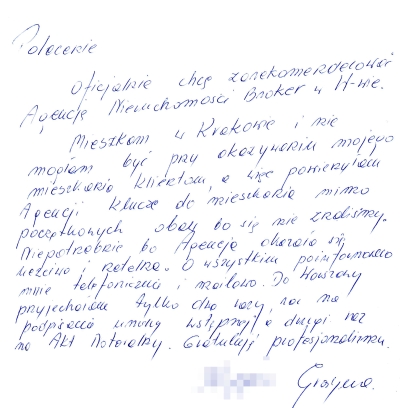 Polecenie
Oficjalnie chcę zarekomendować
Agencję Nieruchomości Broker w W-wie.
Mieszkam w Krakowie i nie
mogłam być przy okazywaniu mojego
mieszkania klientom, a więc powierzyłam
Agencji klucze do mieszkania mimo
początkowych obaw bo się nie znaliśmy.
Niepotrzebnie bo Agencja okazała się
uczciwa i rzetelna. O wszystkim poinformowano
mnie telefonicznie i mailowo. Do Warszawy
przyjechałam tylko dwa razy, raz na
podpisanie umowy wstępnej a drugi raz
na Akt Notarialny. Gratuluję profesjonalizmu.
Grażyna.